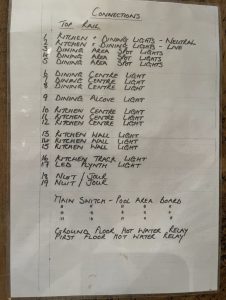 CONNECTIONS
TOP RAIL
1 KITCHEN + DINING LIGHTS - NEUTRAL
2 KITCHEN + DINING LIGHTS - LIVE
3 DINING AREA SPOT LIGHTS
4 DINING AREA SPOT LIGHTS
5 DINING AREA SPOT LIGHTS
6 DINING CENTRE LIGHT
7 DINING CENTRE LIGHT
8 DINING CENTRE LIGHT
9 DINING ALCOVE LIGHT
10 KITCHEN CENTRE LIGHT
11 KITCHEN CENTRE LIGHT
12 KITCHEN CENTRE LIGHT
13 KITCHEN WALL LIGHT
14 KITCHEN WALL LIGHT
15 KITCHEN WALL LIGHT
16 KITCHEN TRACK LIGHT
17 LED PLYNTH LIGHT
18 NUIT / JOUR
19 NUIT / JOUR
MAIN SWITCH - POOL AREA BOARD
" " " " "
" " " " "
" " " " "
GROUND FLOOR HOT WATER RELAY
FIRST FLOOR HOT WATER RELAY